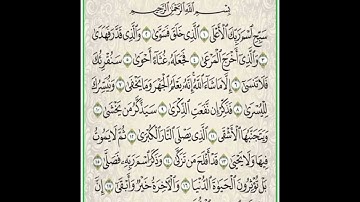 بِسْمِ اللَّهِ الرَّحْمَٰنِ الرَّحِيمِ
سَبِّحِ اسْمَ رَبِّكَ الْأَعْلَى ١ الَّذِي خَلَقَ فَسَوَّىٰ ٢ وَالَّذِي قَدَّرَ فَهَدَىٰ
٣ وَالَّذِي أَخْرَجَ الْمَرْعَىٰ ٤ فَجَعَلَهُ غُثَاءً أَحْوَىٰ ٥ سَنُقْرِئُكَ
فَلَا تَنْسَىٰ ٦ إِلَّا مَا شَاءَ اللَّهُ إِنَّهُ يَعْلَمُ الْجَهْرَ وَمَا يَخْفَىٰ ٧ وَنُيَسِّرُكَ
لِلْيُسْرَىٰ ٨ فَذَكِّرْ إِنْ نَفَعَتِ الذِّكْرَىٰ ٩ سَيَذَّكَّرُ مَنْ يَخْشَىٰ ١٠
وَيَتَجَنَّبُهَا الْأَشْقَى ١١ الَّذِي يَصْلَى النَّارَ الْكُبْرَىٰ ١٢ ثُمَّ لَا يَمُوتُ
فِيهَا وَلَا يَحْيَىٰ ١٣ قَدْ أَفْلَحَ مَنْ تَزَكَّىٰ ١٤ وَذَكَرَ اسْمَ رَبِّهِ فَصَلَّىٰ ١٥
بَلْ تُؤْثِرُونَ الْحَيَاةَ الدُّنْيَا ١٦ وَالْآخِرَةُ خَيْرٌ وَأَبْقَىٰ ١٧ إِنَّ